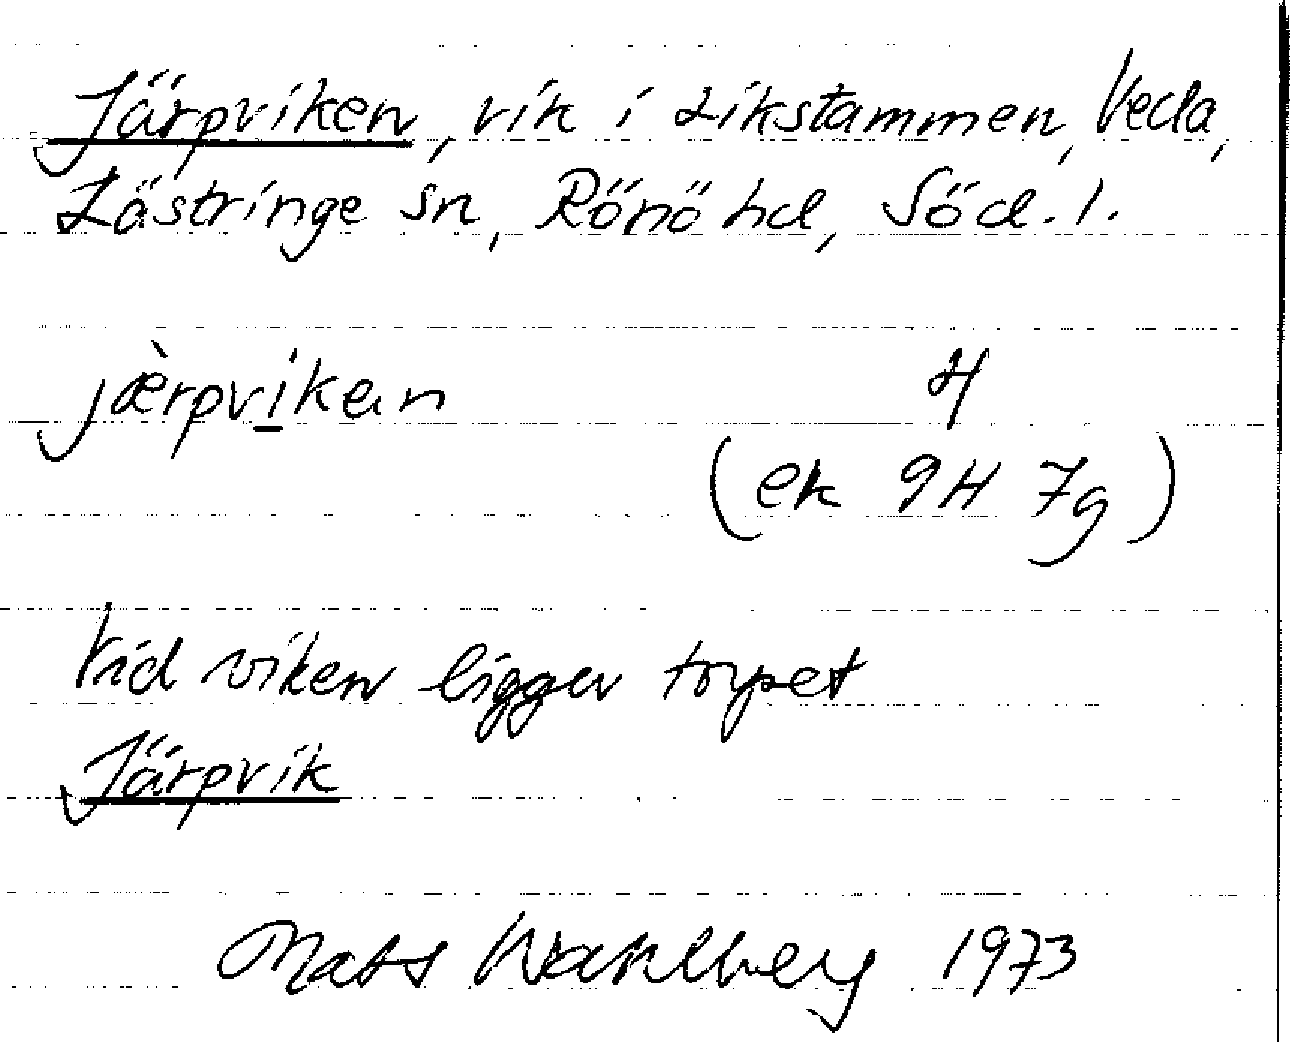 Järpviken, vik i Likstammen, Veda,
Lästringe sn, Rönö hd, Söd. l.
jæ̀rpvi̲kan 4
(ek 9H 7g)
Vid viken ligger torpet
Järpvik
Mats Wahlberg 1973